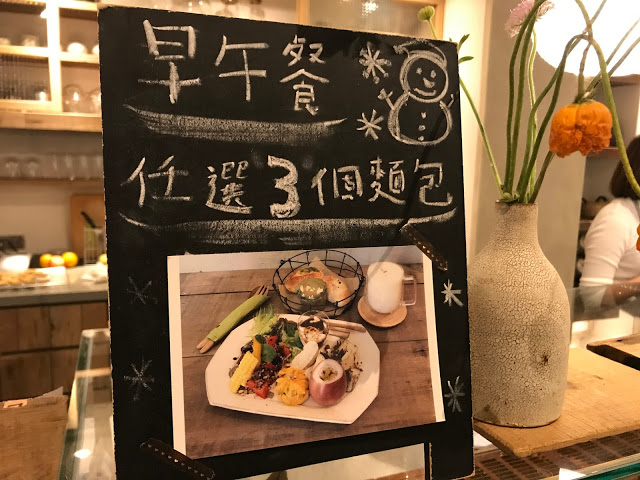 早午餐
任選3個麵包